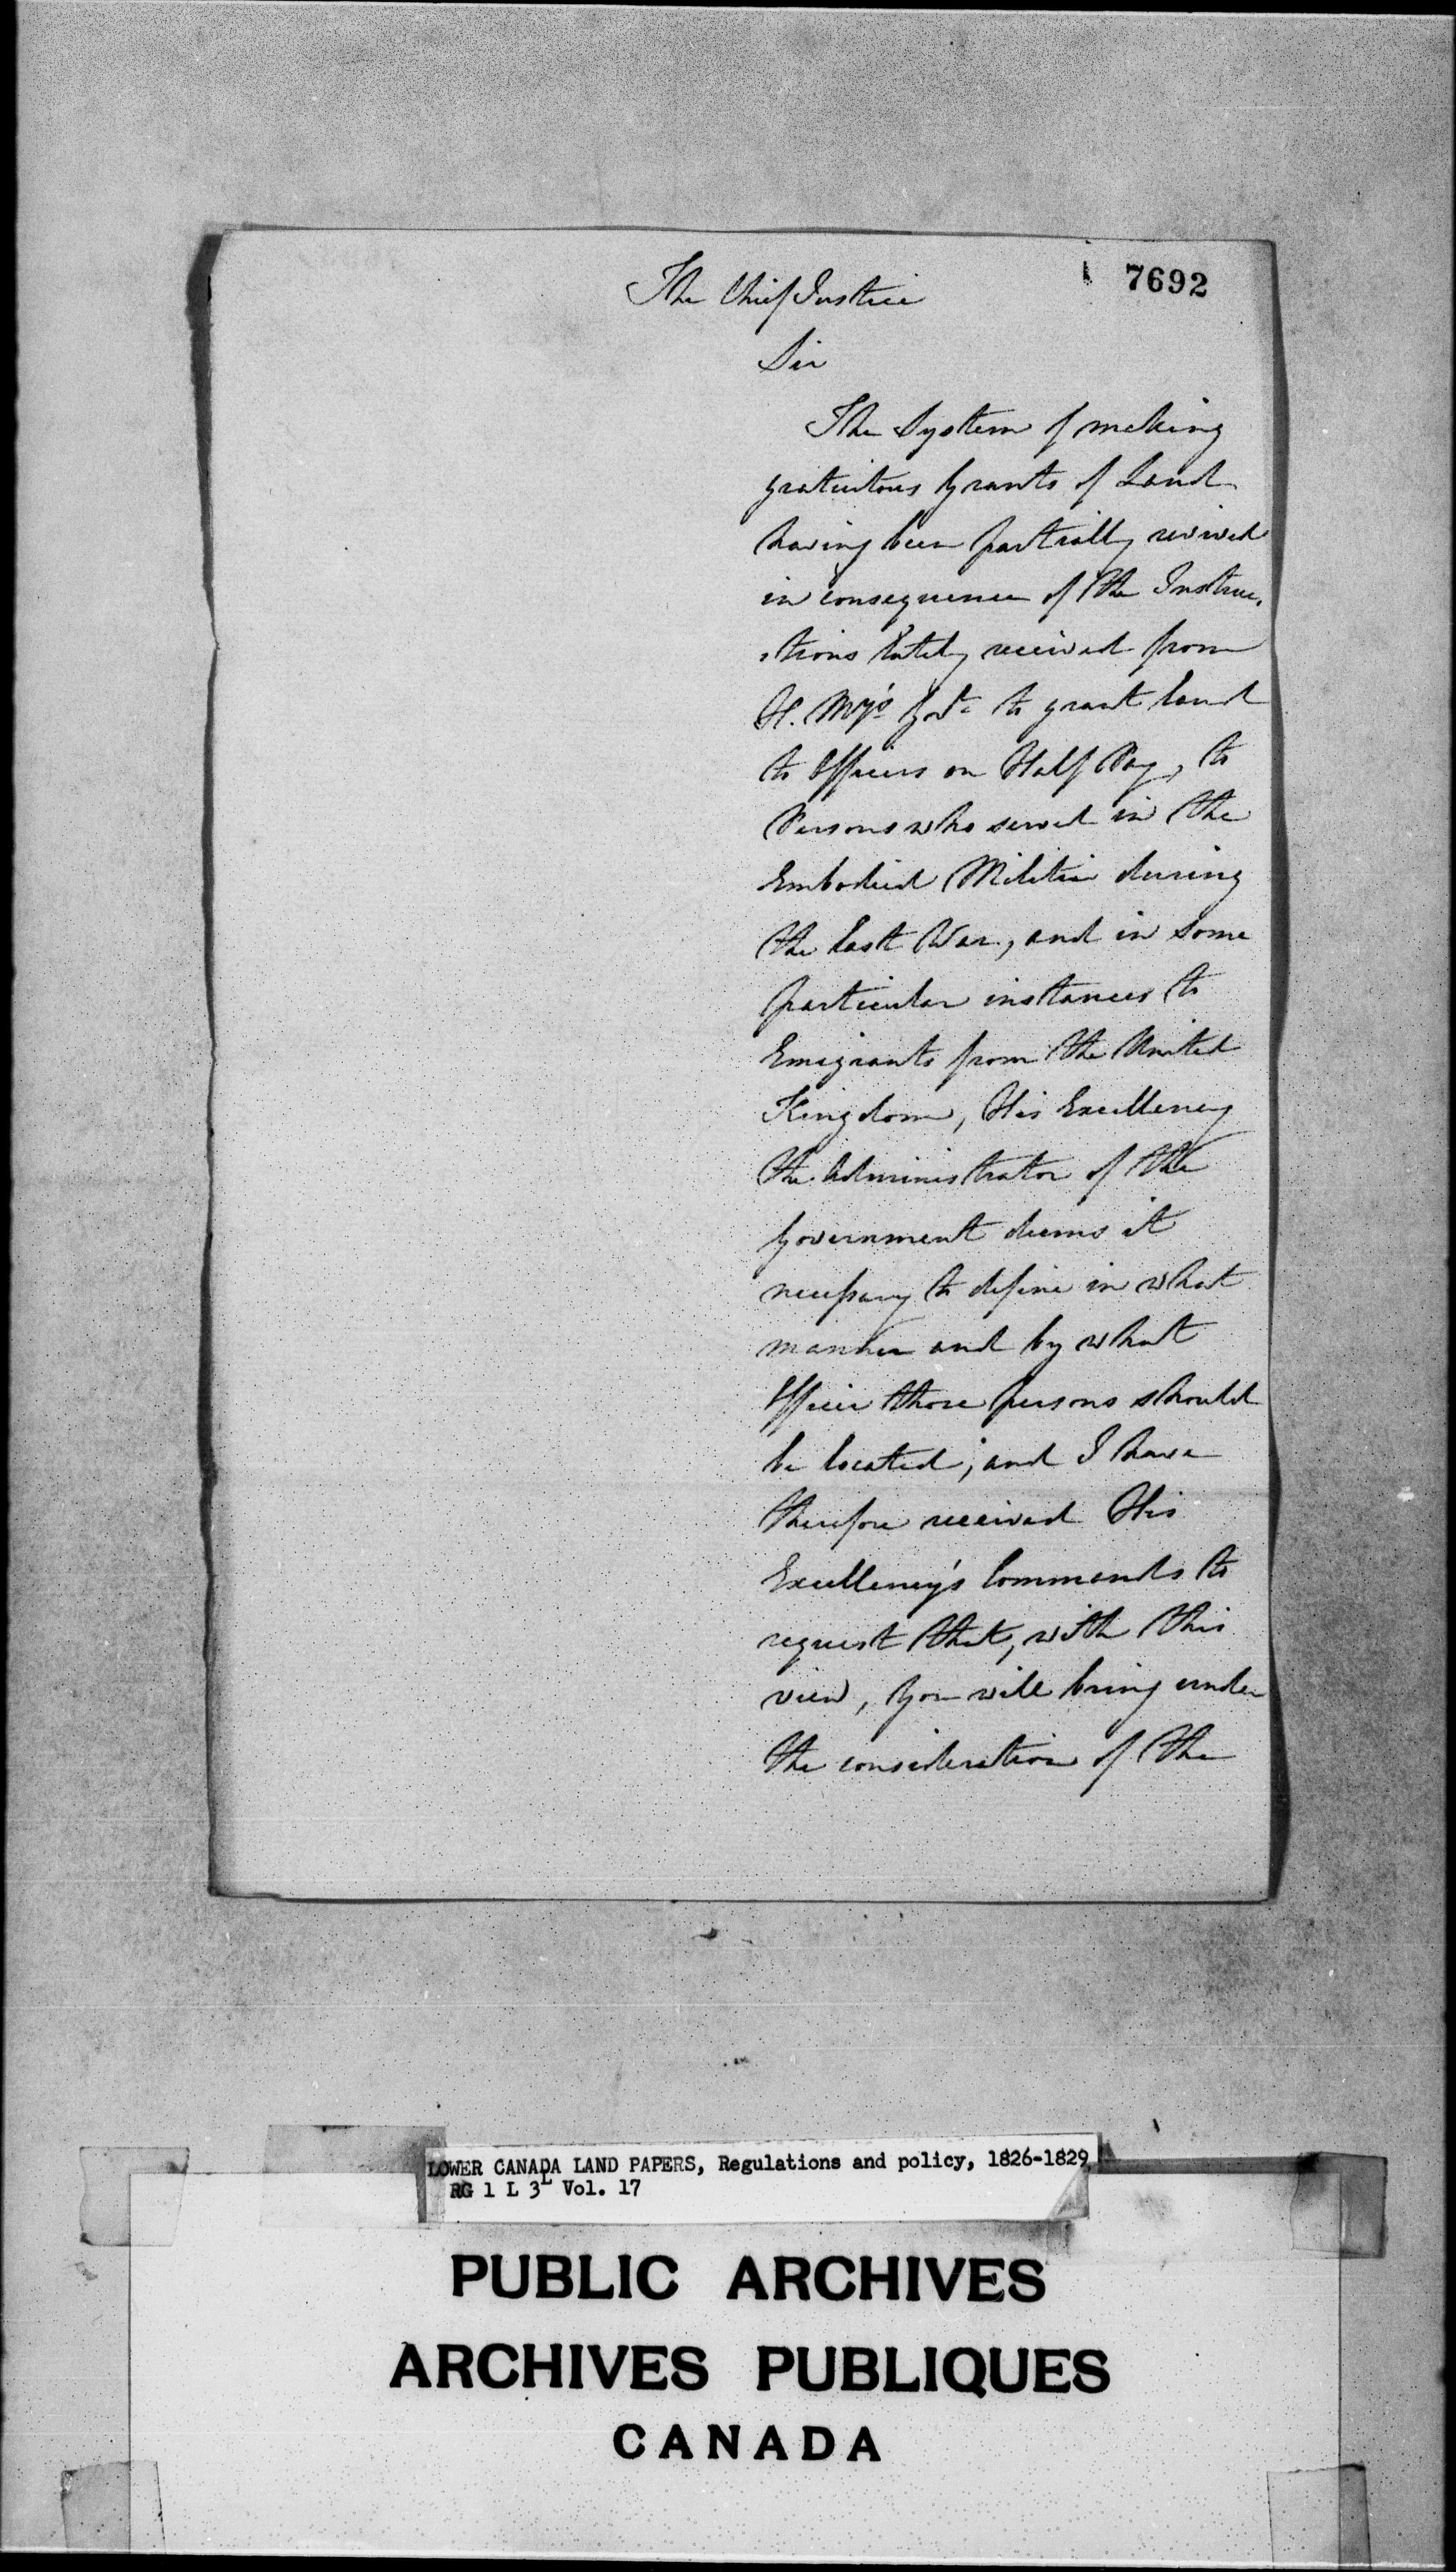 7692
The Chief Justice
Sir
The System of making
gratuitous Grants of Land
having been partially revived
in consequence of the Instruc-
-tions lately received from
H. My's Govt. to grant land
to Officers on Half Pay, to
Persons who served in the
Embodied Militia during
the last War, and in some
particular instances to
Emigrants from the United
Kingdom, His Excellency
the Administrator of the
Government deems it
necessary to define in what
manner and by what
Officer those persons should
be located; and I have
therefore received His
Excellency's Commands to
request that, with this
view, You will bring under
the consideration of the
LOWER CANADA LAND PAPERS, Regulations and policy, 1826-1829
RG 1 L 3L Vol. 17
PUBLIC ARCHIVES
ARCHIVES PUBLIQUES
CANADA